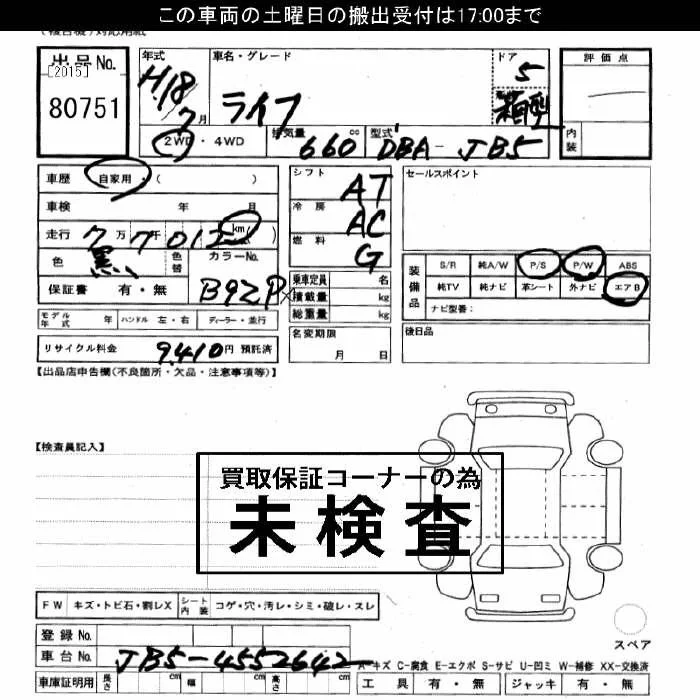 この車両の土曜日の搬出受付は17:00まで
出品No.
[2015]
80751
年式 車名・グレード ドア 評価点
H.18 7月 ライフ 5
箱型
2WD・4WD 排気量 660 cc 型式 DBA-JB5 内装
車歴 自家用 ( )
車検 年 月
走行 7万7千01 km
色 黒 色替 カラーNo. B92P
保証書 有・無
シフト AT
冷房 AC
燃料 G
乗車定員 名
積載量 kg
総重量 kg
セールスポイント
装備品 S/R 純A/W P/S P/W ABS
純TV 純ナビ 革シート 外ナビ エアB
ナビ型番:
モデル年式 年 ハンドル 左・右 ディーラー・並行
名変期限 月 日
後日品
リサイクル料金 9,410円 預託済
【出品店申告欄(不良箇所・欠品・注意事項等)】
【検査員記入】
買取保証コーナーの為
未検査
FW キズ・トビ石・割レX シート内装 コゲ・穴・汚レ・シミ・破レ・スレ
スペア
登録No.
車台No. JB5-4552642
A-キズ C-腐食 E-エクボ S-サビ U-凹ミ W-補修 XX-交換済
車庫証明用 長さ cm 幅 cm 高さ cm 工具 有・無 ジャッキ 有・無